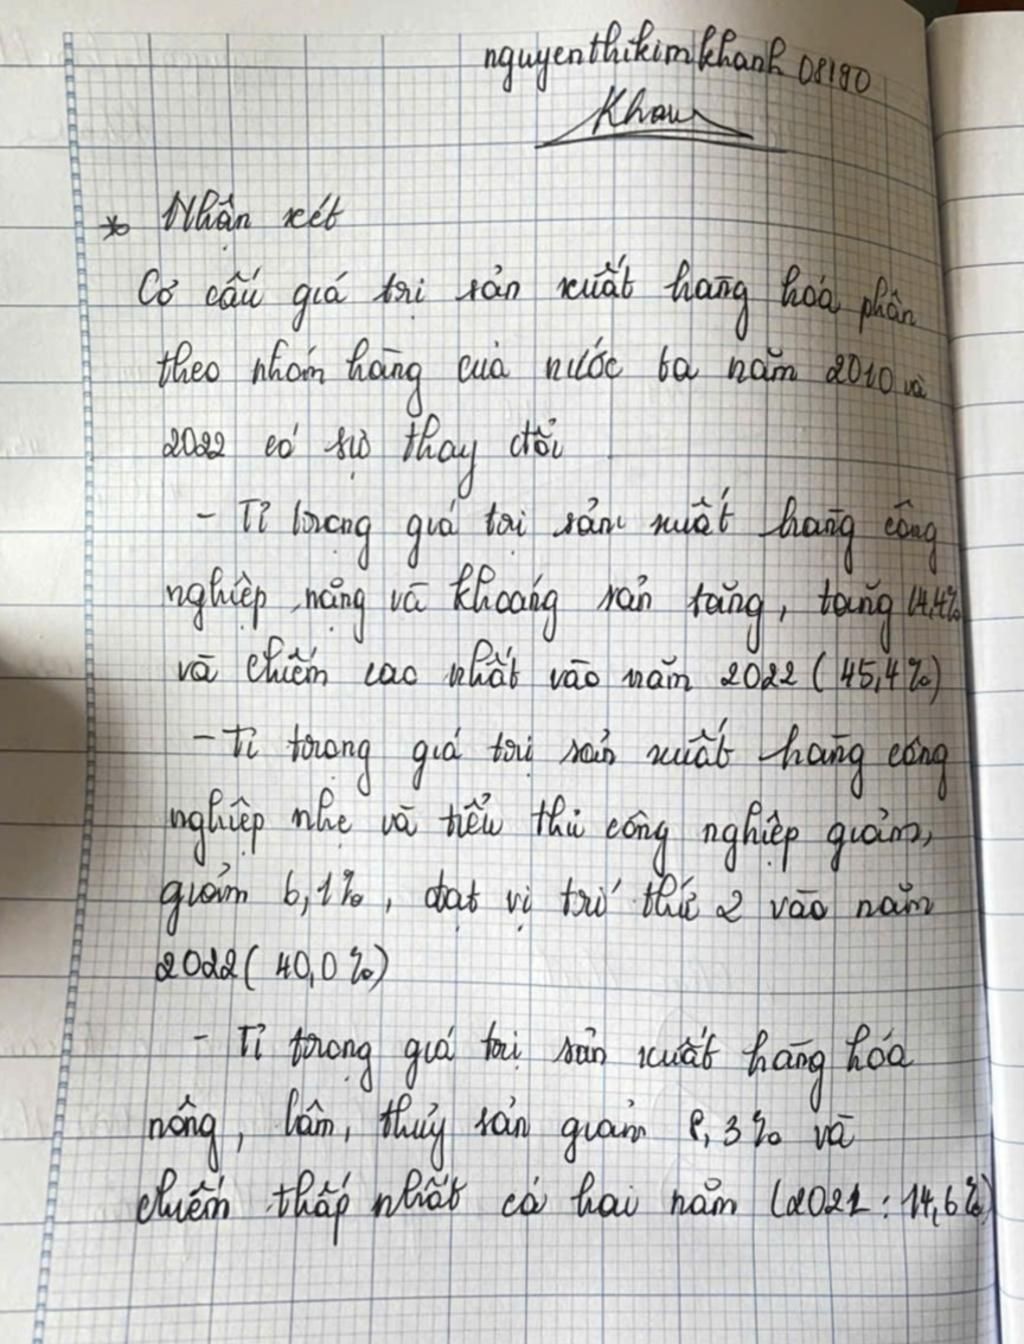 nguyenthikimkhanh 08190
Khanh
* Nhận xét
Cơ cấu giá trị sản xuất hàng hóa phân
theo nhóm hàng của nước ta năm 2010 và
2022 có sự thay đổi
- Tỉ trọng giá trị sản xuất hàng công
nghiệp nặng và khoáng sản tăng, tăng 14,4%
và chiếm cao nhất vào năm 2022 (45,4%)
- Tỉ trọng giá trị sản xuất hàng công
nghiệp nhẹ và tiểu thủ công nghiệp giảm,
giảm 6,1%, đạt vị trí thứ 2 vào năm
2022 (40,0%)
- Tỉ trọng giá trị sản xuất hàng hóa
nông, lâm, thủy sản giảm 8,3% và
chiếm thấp nhất cả hai năm (2021: 14,6%)